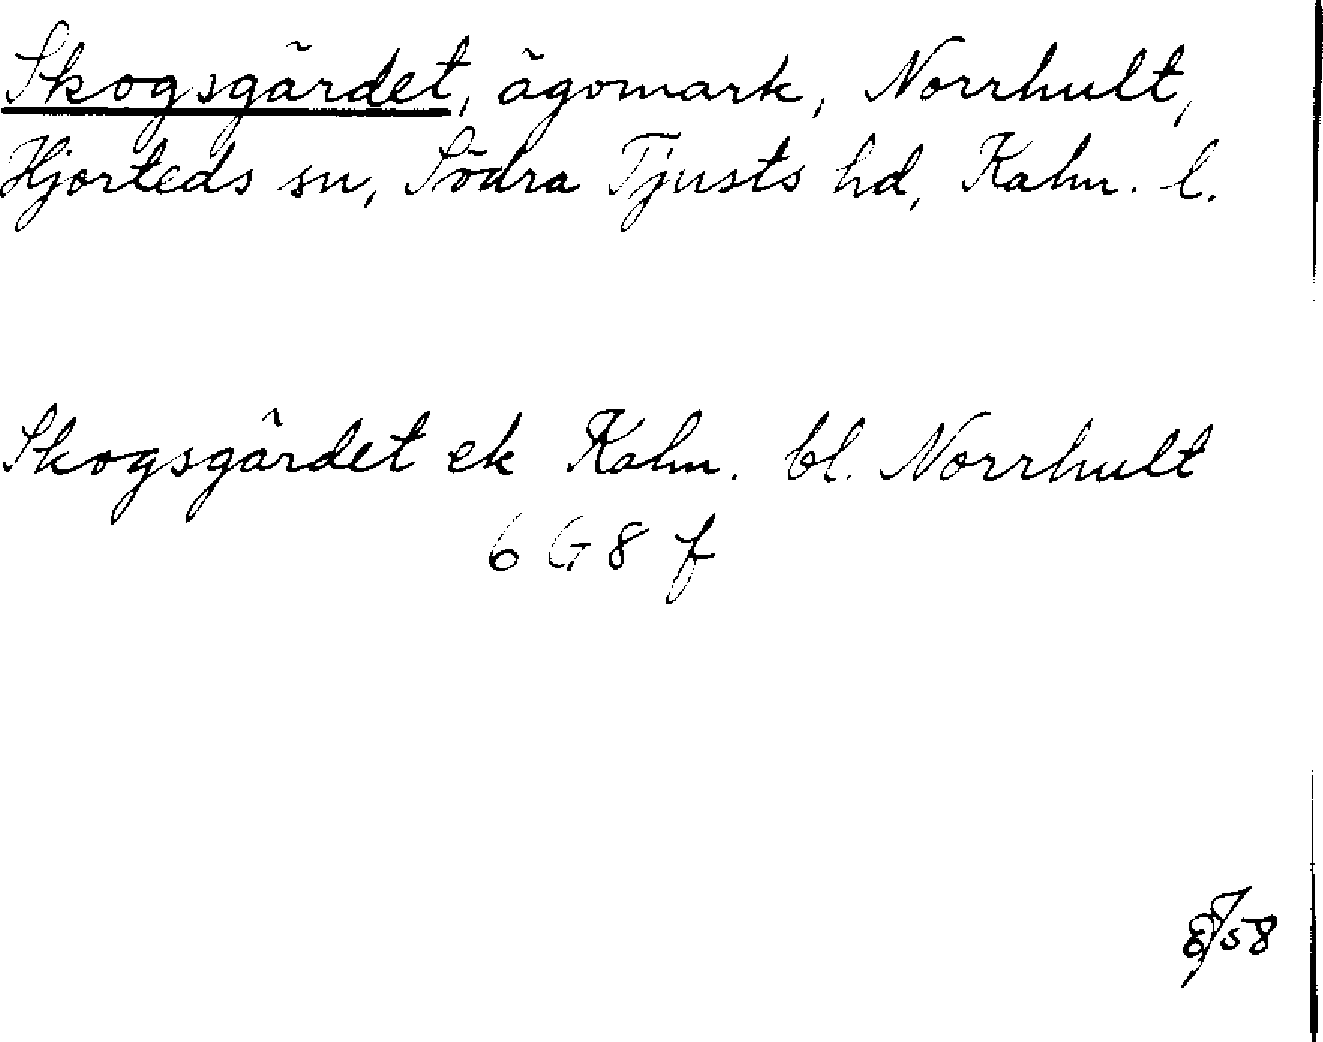 Skogsgärdet, ägomark, Norrhult,
Hjorteds sn, Södra Tjusts hd, Kalm. l.
Skogsgärdet ek Kalm. bl. Norrhult
6 G 8 f